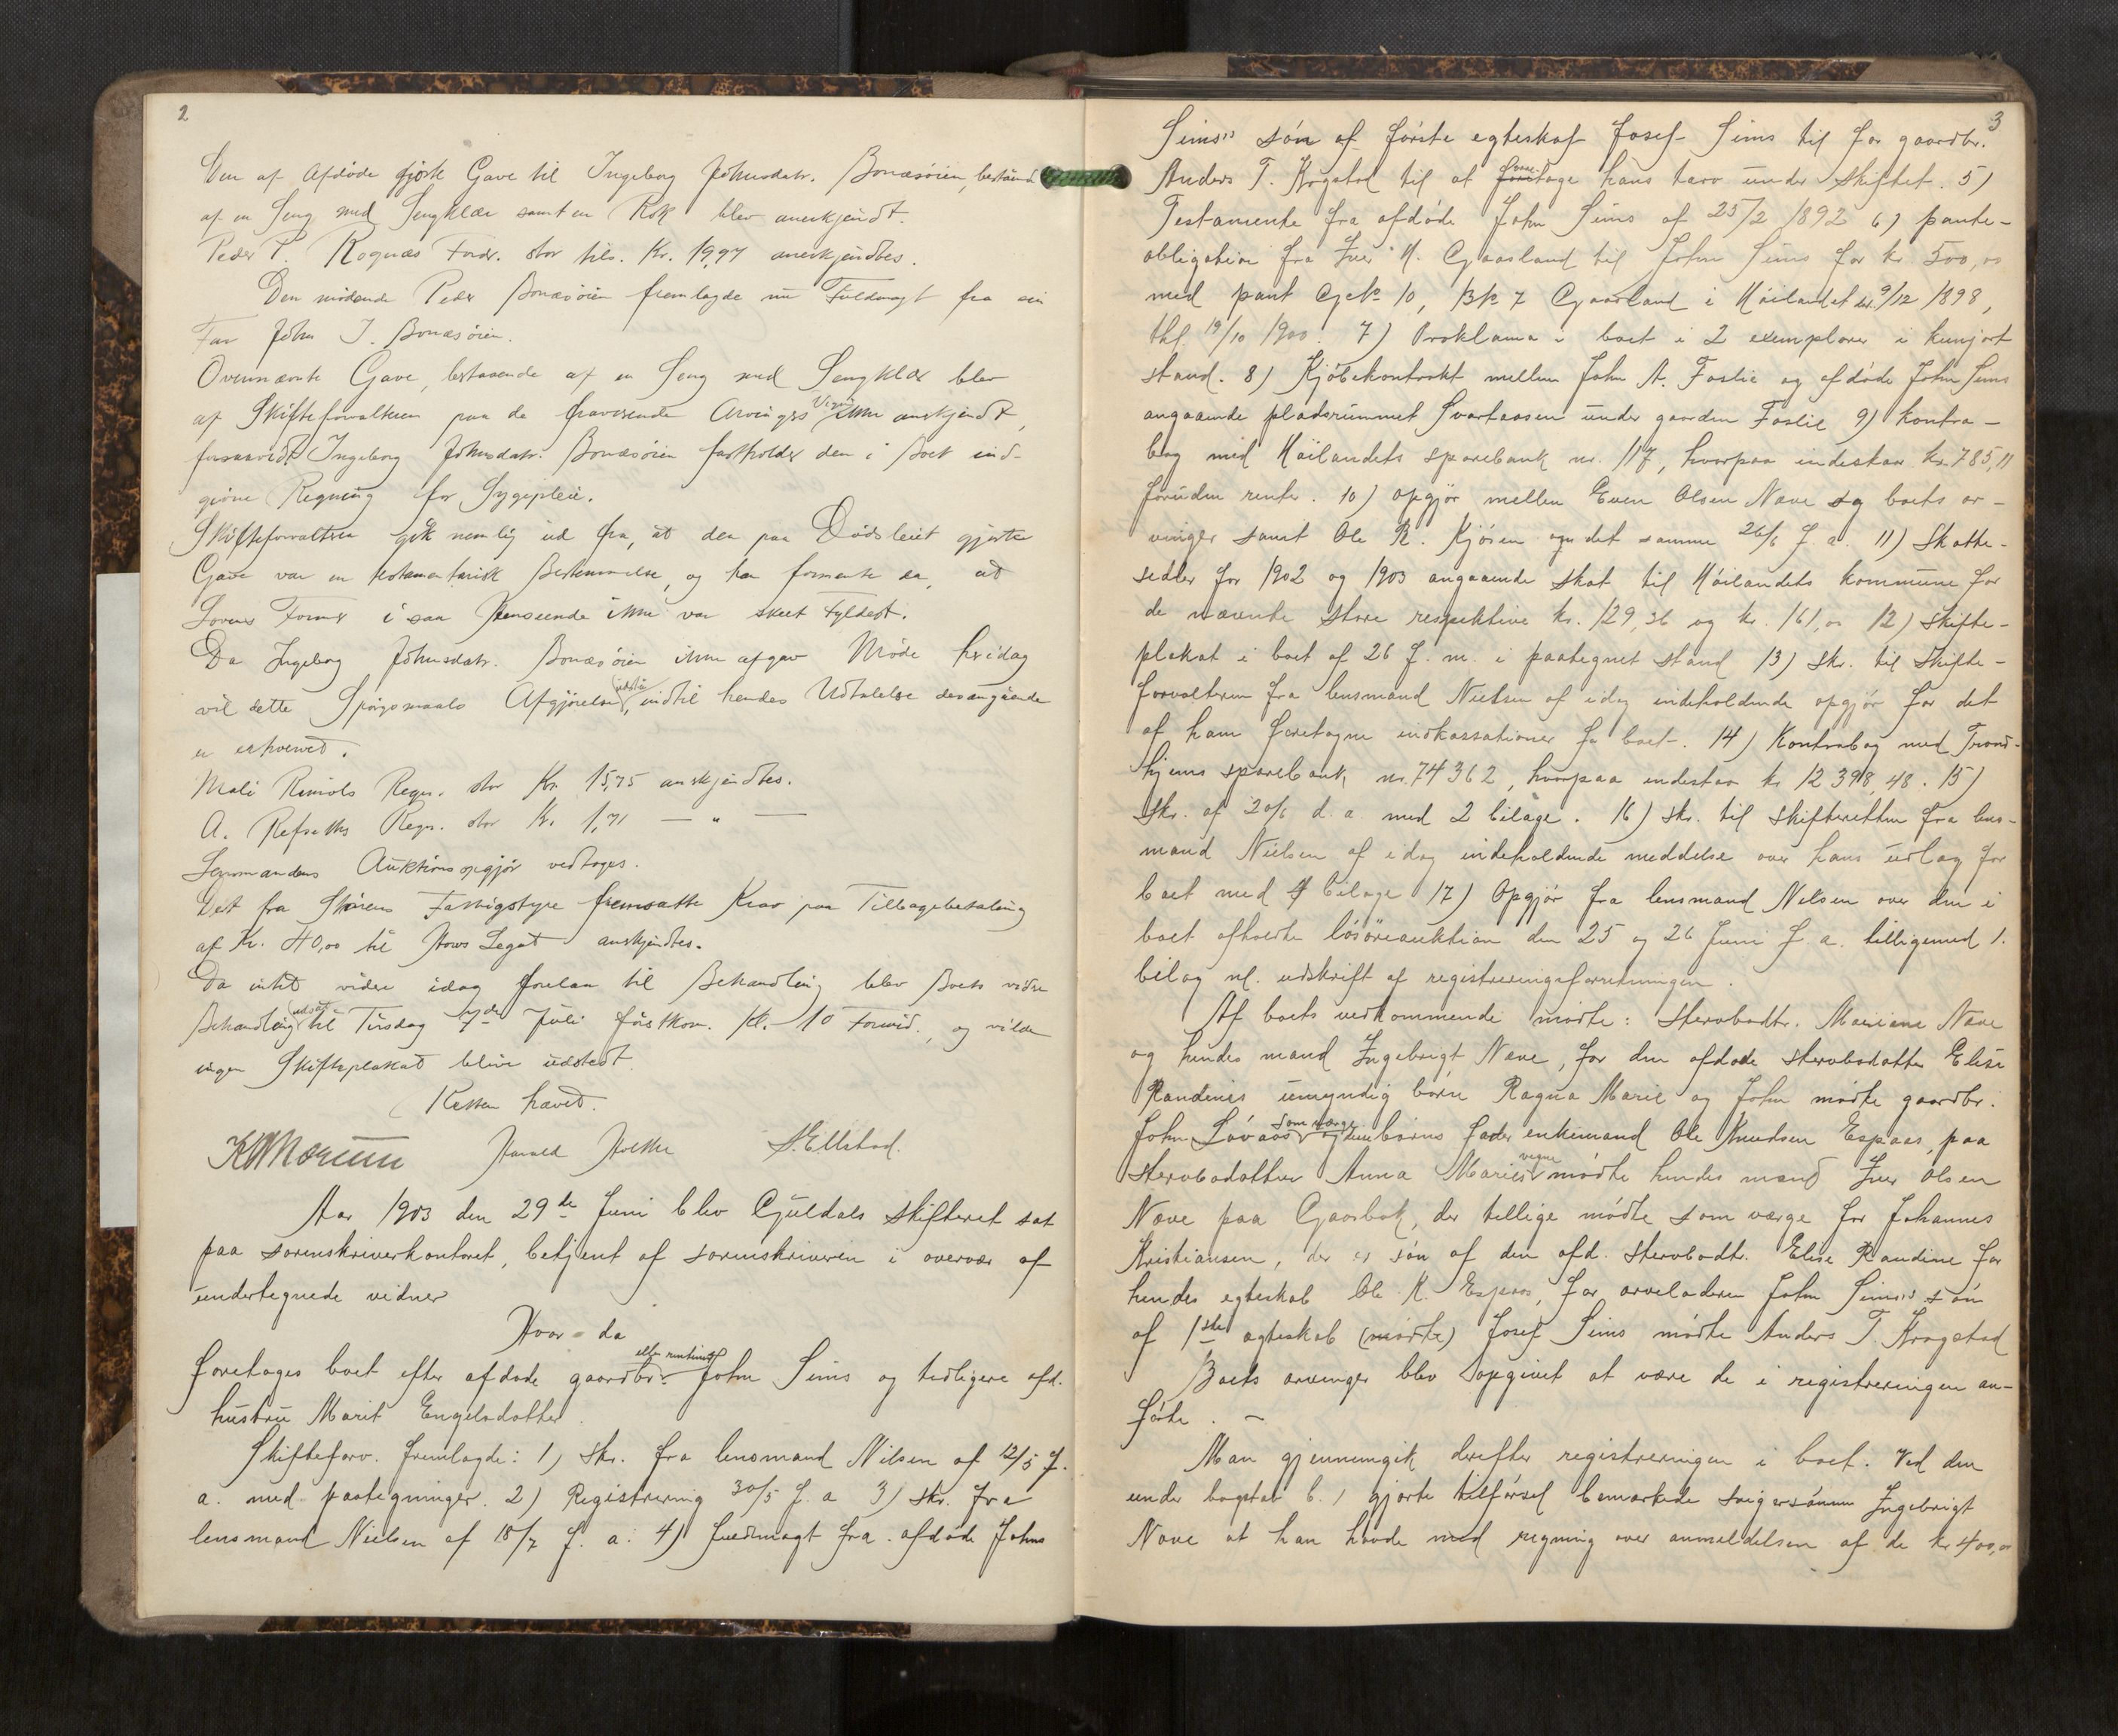 2
Den af Afdøde gjorte Gave til Ingeborg Johnsdatr. Bonæsøien, bestaaende
af en Seng med Sengklær samt en Rok blev anerkjendt.
Peder P. Rognæs Fordr. stor tils. Kr. 19,97 anerkjendtes.
Den mødende Peder Bonæsøien fremlagde nu Fuldmagt fra sin
Far John I. Bonæsøien.
Ovennævnte Gave, bestaaende af en Seng med Sengklær blev
af Skifteforvalteren paa de fraværende Arvinges Vegne ikke anerkjendt,
forsaavidt Ingeborg Johnsdatr. Bonæsøien fastholder den i Boet ind-
givne Regning for Sygepleie.
Skifteforvalteren gik nemlig ud fra, at den paa Dødsleiet gjorte
Gave var en testamentarisk Bestemmelse, og han formente da, at
Lovens Former i saa Henseende ikke var skeet Fyldest.
Da Ingeborg Johnsdatr. Bonæsøien ikke afgav Møde heridag
vil dette Spørgsmaals Afgjørelse udstå, indtil hendes Udtalelse desangående
er erhvervet.
Mali Rimols Regn. stor Kr. 15,75 anerkjendtes.
A. Refseths Regn. stor Kr. 1,71 — „ —
Lensmandens Auktionsopgjør vedtoges.
Det fra Størens Fattigstyre fremsatte Krav paa Tilbagebetaling
af Kr. 40,00 til Hovs Legat anerkjendtes.
Da intet videre idag forelaa til Behandling blev Boets videre
Behandling udsat til Tirsdag 7de Juli førstkom. Kl. 10 Formid., og vilde
ingen Skifteplakat blive udstedt.
Retten hævet.
Harald Holthe S. Ellstad.
Aar 1903 den 29de Juni blev Guldals skifteret sat
paa sorenskriverkontoret, betjent af sorenskriveren i overvær af
undertegnede vidner
Hvor da
foretoges boet efter afdøde gaardbr. John Sims og tidligere afd.
hustru Marit Engelsdatter.
Skifteforv. fremlagde: 1) skr. fra lensmand Nilsen af 12/5 f.
a. med paategninger. 2) Registrering 30/5 f. a 3) skr. fra
lensmand Nielsen af 18/7 f. a. 4) fuldmagt fra afdøde Johns
3
Sims's søn af første egteskab Josef Sims til for gaardbr.
Anders T. Krogstad til at foretage hans tarv under skiftet. 5)
Testamente fra afdøde John Sims af 25/2 1892 6) pante-
obligation fra Iver M. Gaasland til John Sims for kr 500,00
med pant G.No 10, B.No 7 Gaasland i Høilandet dat. 9/12 1898,
thl. 19/10 1900. 7) Proklama i boet i 2 exemplarer i kungjort
stand. 8) Kjøbekontrakt mellem John A. Foslie og afdøde John Sims
angaaende pladsrummet Svartaasen under gaarden Foslie 9) kontra-
bog med Høilandets sparebank nr. 117, hvorpaa indestaar kr. 785,11
foruden renter. 10) opgjør mellem Even Olsen Næve og boets ar-
vinger samt Ole R. Kjøsen om det samme 26/6 f. a. 11) Skatte-
sedler for 1902 og 1903 angaaende skat til Høilandets kommune for
de nævnte store respektive kr. 129,36 og kr. 161,00 12) Skifte-
plakat i boet af 26 f. m. i paategnet stand 13) Skr. til Skifte-
forvalteren fra lensmand Nielsen af idag indeholdende opgjør for det
af ham foretagne indkassationer for boet. 14) Kontrabog med Trond-
hjems sparebank nr. 74362, hvorpaa indestaar kr 12398,48. 15)
Skr. af 20/6 d. a. med 2 bilage. 16) skr. til skifteretten fra lens-
mand Nielsen af idag indeholdende meddelse over hans udlæg for
boet med 4 bilage 17) Opgjør fra lensmand Nilsen over den i
boet afholdte løsøreauktion den 25 og 26 Juni f. a. tilligemed 1.
bilag nl. udskrift af registreringsforretningen.
Af boets vedkommende mødte: Stervbodtr. Mariane Næve
og hendes mand Ingebrigt Næve, for den afdøde stervbodatter Elise
Randines umyndig børn Ragna Marie og John mødte gaardbr.
John Løvaas som værge og børns fader enkemand Ole Knudsen Espaas, paa
stervbodatter Anna Maries vegne mødte hendes mand Iver Olsen
Næve paa Gaarbak, der tillige mødte som værge for Johannes
Kristiansen, der er søn af den afd. stervbodtr. Elise Randine før
hendes egteskab Ole K. Espaas, for arveladeren John Sims's søn
af 1ste egteskab (mødte) Josef Sims mødte Anders T. Krogstad
Boets arvinger blev opgivet at være de i registreringen an-
førte. —
Man gjennemgik derefter registreringen i boet. Ved den
under bogstav b. 1 gjorte tilførsel bemærkede svigersønnen Ingebrigt
Næve at han havde med regning over anmeldelsen af de kr 400,00